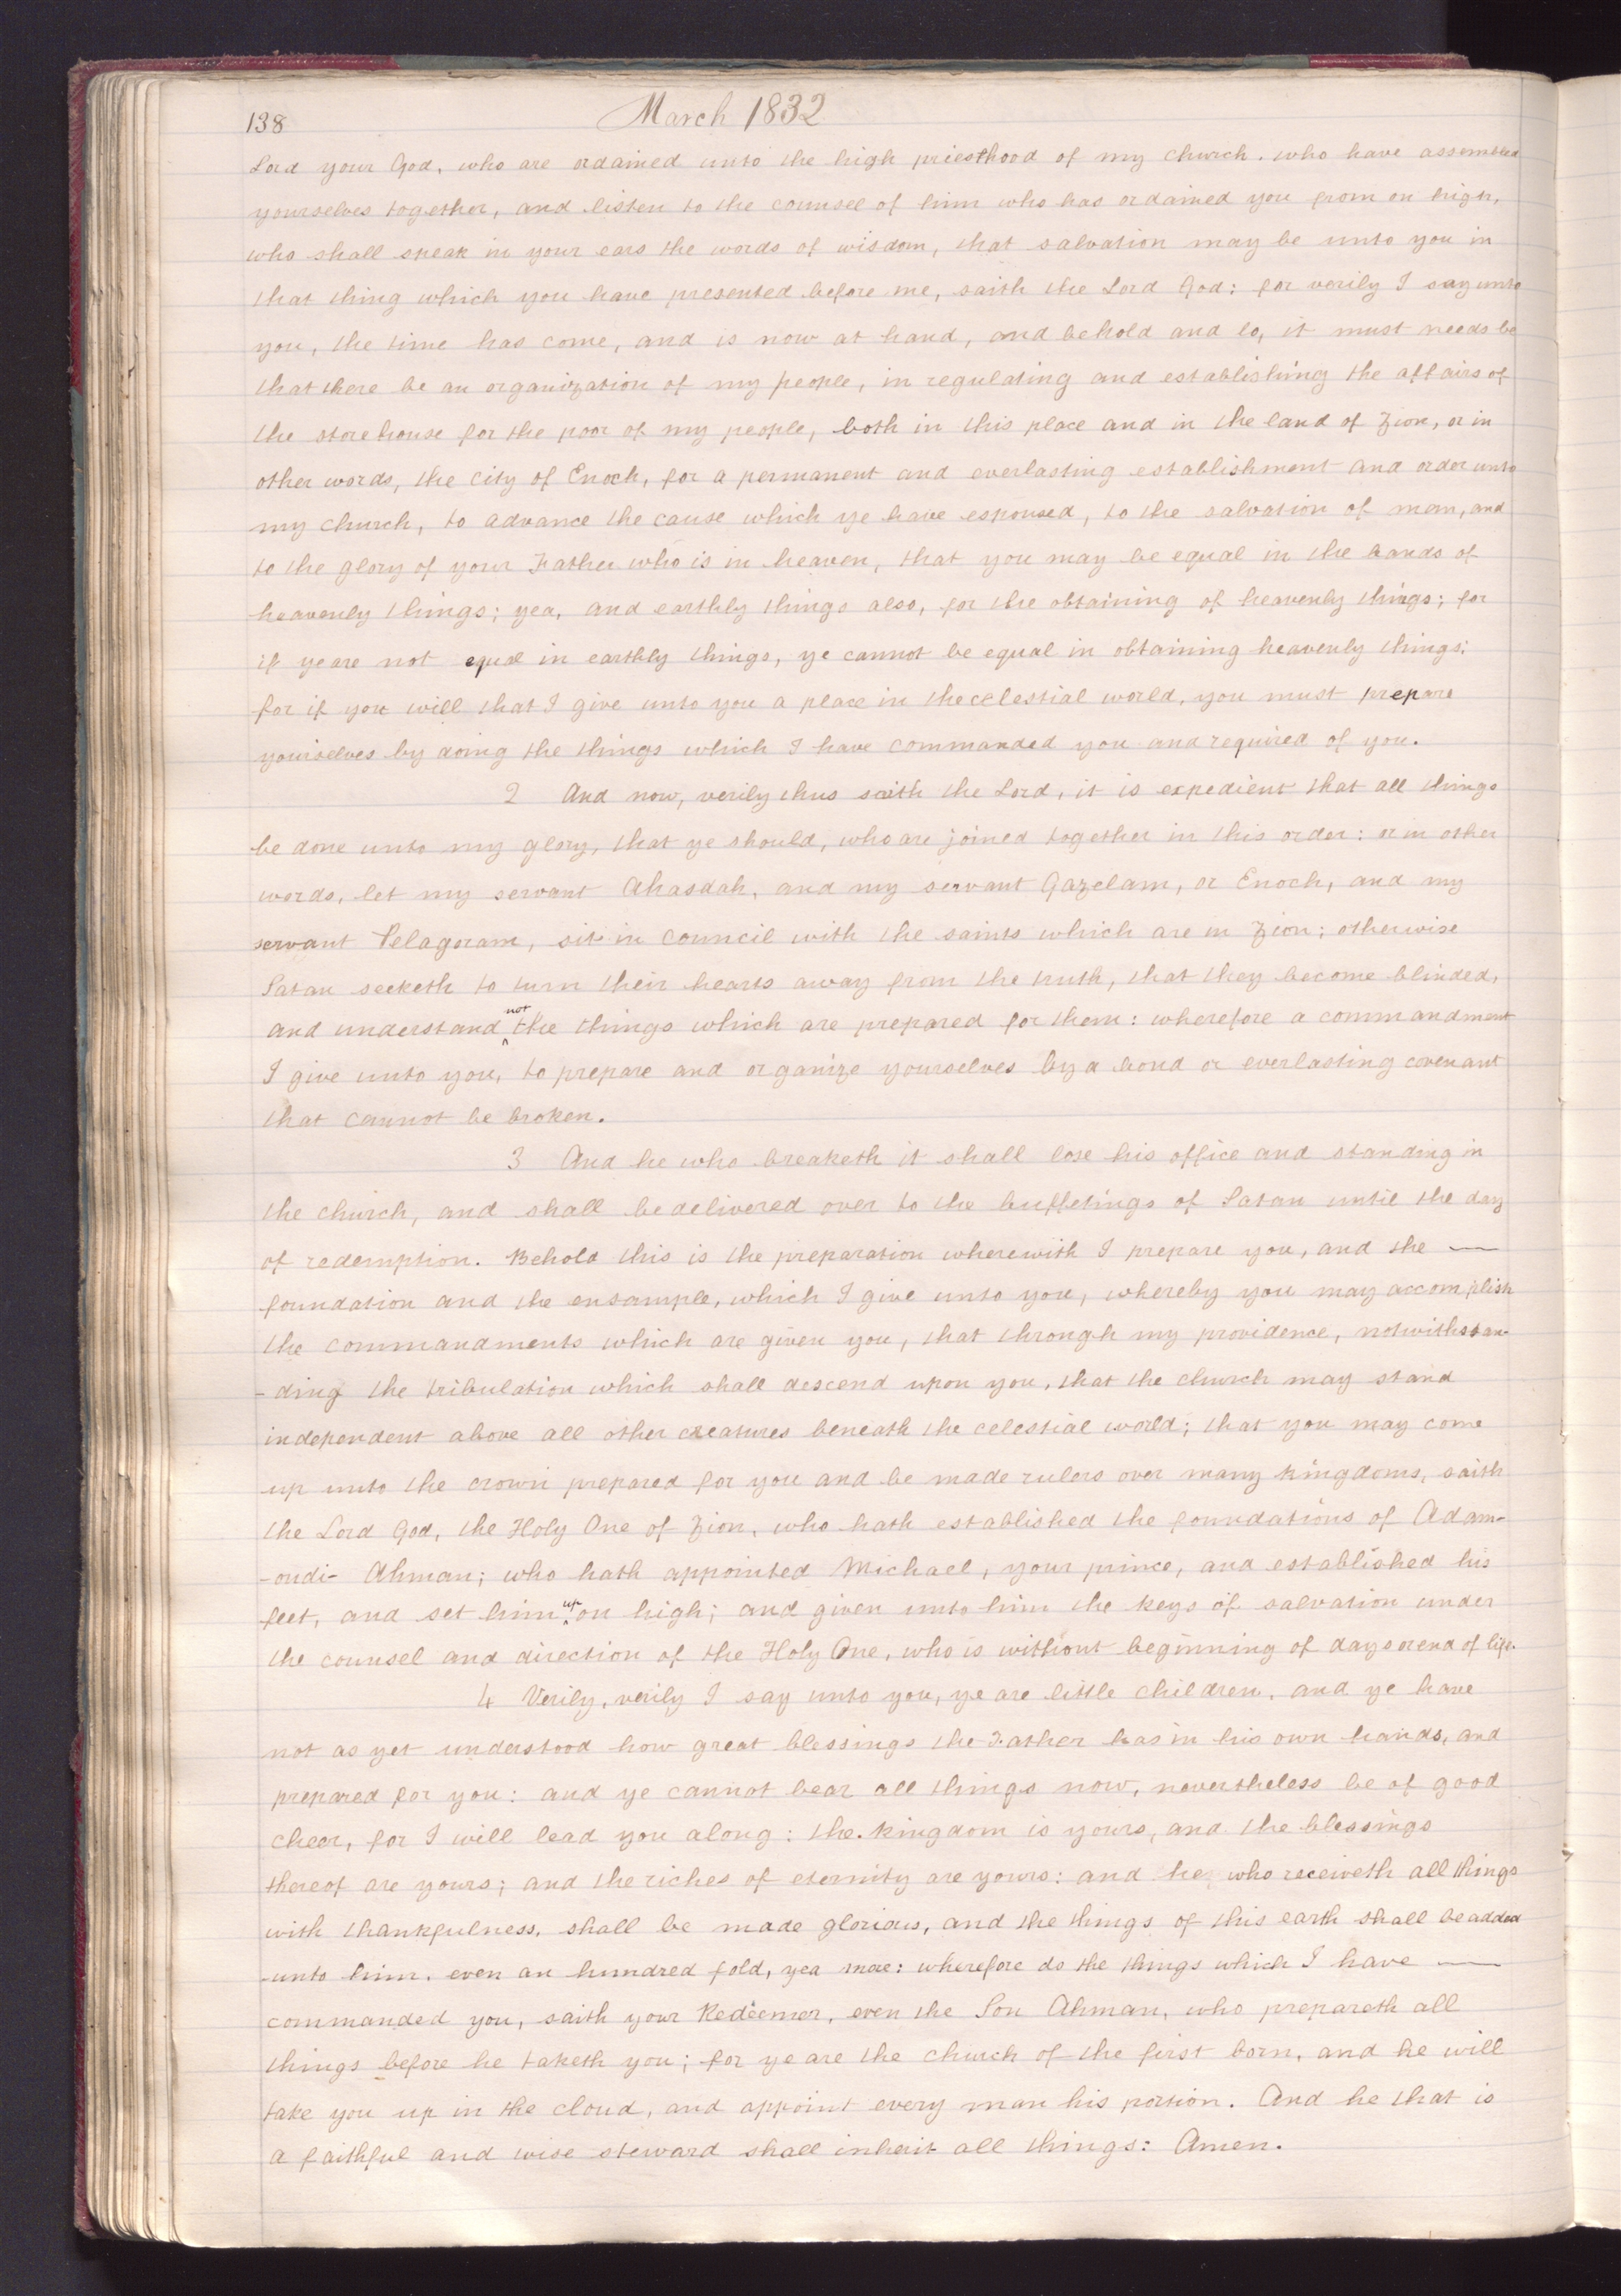 138
March 1832
Lord your God, who are ordained unto the high priesthood of my church. who have assembled
yourselves together, and listen to the counsel of him who has ordained you from on high,
who shall speak in your ears the words of wisdom, that salvation may be unto you in
that thing which you have presented before me, saith the Lord God: for verily I say unto
you, the time has come, and is now at hand, and behold and lo, it must needs be
that there be an organization of my people, in regulating and establishing the affairs of
the store house for the poor of my people, both in this place and in the land of Zion, or in
other words, the city of Enoch, for a permanent and everlasting establishment and order unto
my church, to advance the cause which ye have espoused, to the salvation of man, and
to the glory of your Father who is in heaven, that you may be equal in the bands of
heavenly things; yea, and earthly things also, for the obtaining of heavenly things; for
if ye are not equal in earthly things, ye cannot be equal in obtaining heavenly things;
for if you will that I give unto you a place in the celestial world, you must prepare
yourselves by doing the things which I have commanded you and required of you.
2 And now, verily thus saith the Lord, it is expedient that all things
be done unto my glory, that ye should, who are joined together in this order: or in other
words, let my servant Ahasdah, and my servant Gazelam, or Enoch, and my
servant Pelagoram, sit in council with the saints which are in Zion; otherwise
Satan seeketh to turn their hearts away from the truth, that they become blinded,
and understand not the things which are prepared for them: wherefore a commandment
I give unto you, to prepare and organize yourselves by a bond or everlasting covenant
that cannot be broken.
3 And he who breaketh it shall lose his office and standing in
the church, and shall be delivered over to the buffetings of Satan until the day
of redemption. Behold this is the preparation wherewith I prepare you, and the —
foundation and the ensample, which I give unto you, whereby you may accomplish
the commandments which are given you, that through my providence, notwithstan-
-ding the tribulation which shall descend upon you, that the church may stand
independent above all other creatures beneath the celestial world; that you may come
up unto the crown prepared for you and be made rulers over many kingdoms, saith
the Lord God, the Holy One of Zion, who hath established the foundations of Adam-
-ondi- Ahman; who hath appointed Michael, your prince, and established his
feet, and set him up on high; and given unto him the keys of salvation under
the counsel and direction of the Holy One, who is without beginning of days or end of life.
4 Verily, verily I say unto you, ye are little children, and ye have
not as yet understood how great blessings the Father has in his own hands, and
prepared for you: and ye cannot bear all things now, nevertheless be of good
cheer, for I will lead you along: the kingdom is yours, and the blessings
thereof are yours; and the riches of eternity are yours: and he who receiveth all things
with thankfulness, shall be made glorious, and the things of this earth shall be added
-unto him. even an hundred fold, yea more: wherefore do the things which I have —
commanded you, saith your Redeemer, even the Son Ahman, who prepareth all
things before he taketh you; for ye are the church of the first born, and he will
take you up in the cloud, and appoint every man his portion. And he that is
a faithful and wise steward shall inherit all things: Amen.